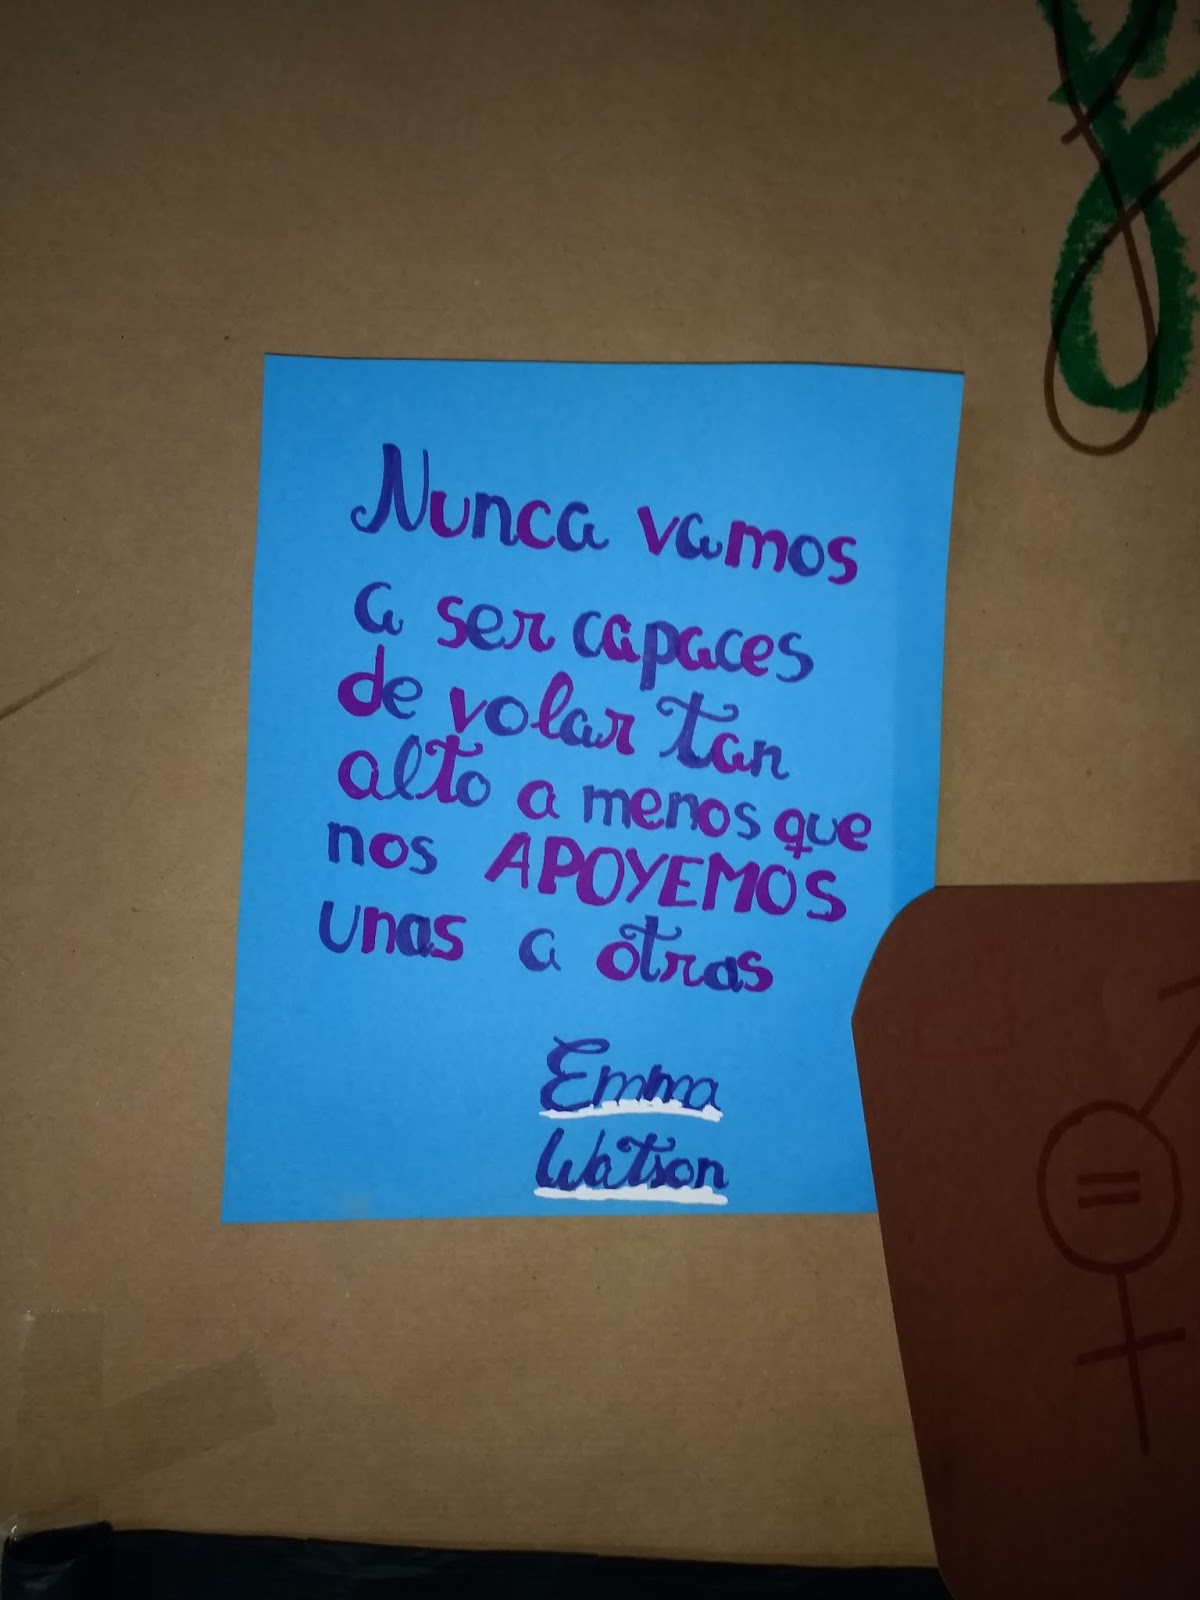 Nunca vamos
a ser capaces
de volar tan
alto a menos que
nos APOYEMOS
unas a otras
Emma
Watson